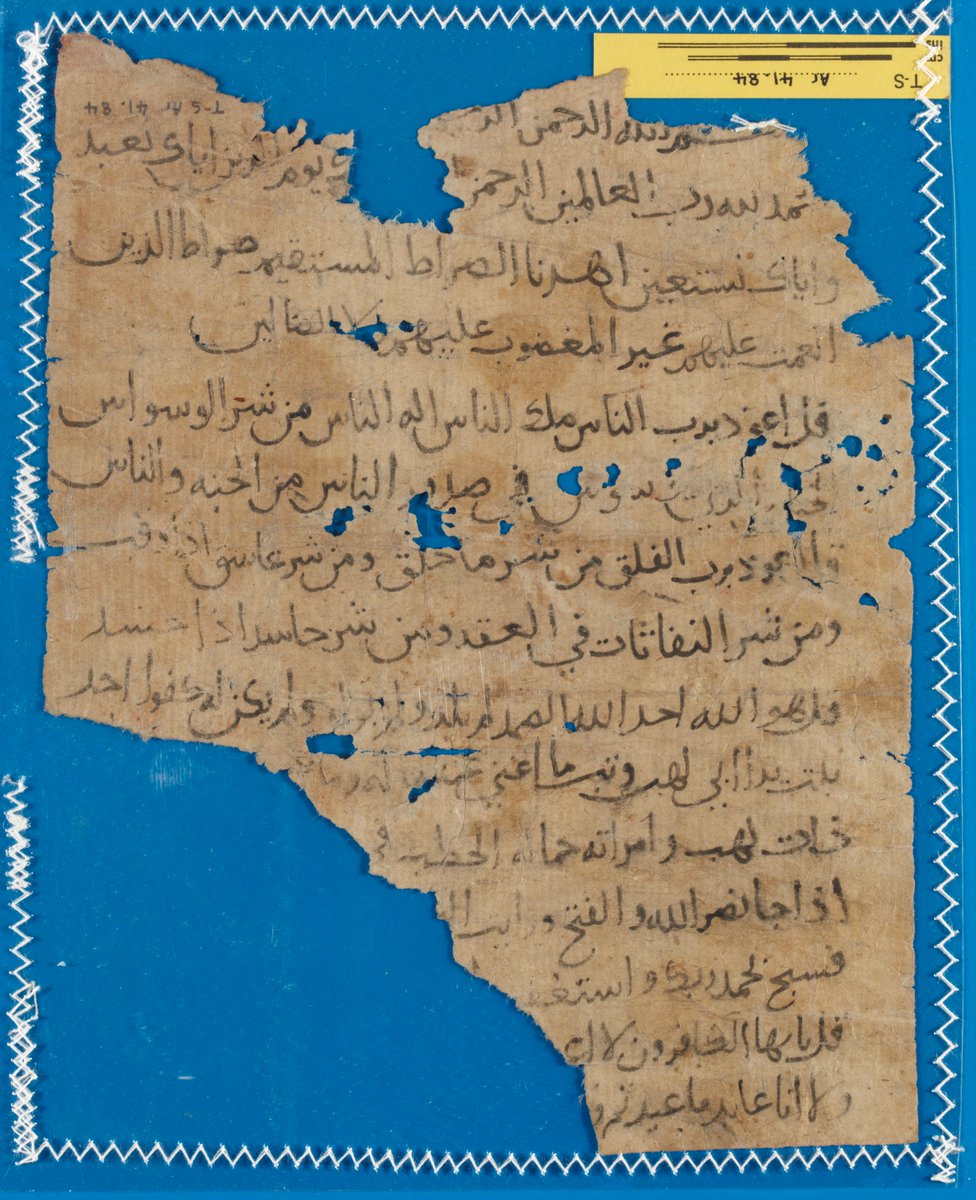 بسم الله الرحمن الر
حمد لله رب العالمين الرحمن يوم الدين اياك نعبد
واياك نستعين اهدنا الصراط المستقيم صراط الذين
انعمت عليهم غير المغضوب عليهم ولا الضالين
قل اعوذ برب الناس ملك الناس اله الناس من شر الوسواس
في صدور الناس من الجنه والناس
قل اعوذ برب الفلق من شر ما خلق ومن شر غاسق اذا وقب
ومن شر النفاثات في العقد ومن شر حاسد اذا حسد
قل هو الله احد الله الصمد لم يلد ولم يولد ولم يكن له كفوا احد
تبت يدا ابي لهب وتب ما اغني عنه ماله وما
ذات لهب وامراته حماله الحطب في
اذا جا نصر الله والفتح ورايت ال
فسبح بحمد ربك واستغف
قل يايها الكافرون لا اع
ولا انا عابد ما عبدتم و
T-S Ar 41.84
T-S Ar 41.84
cms
ins